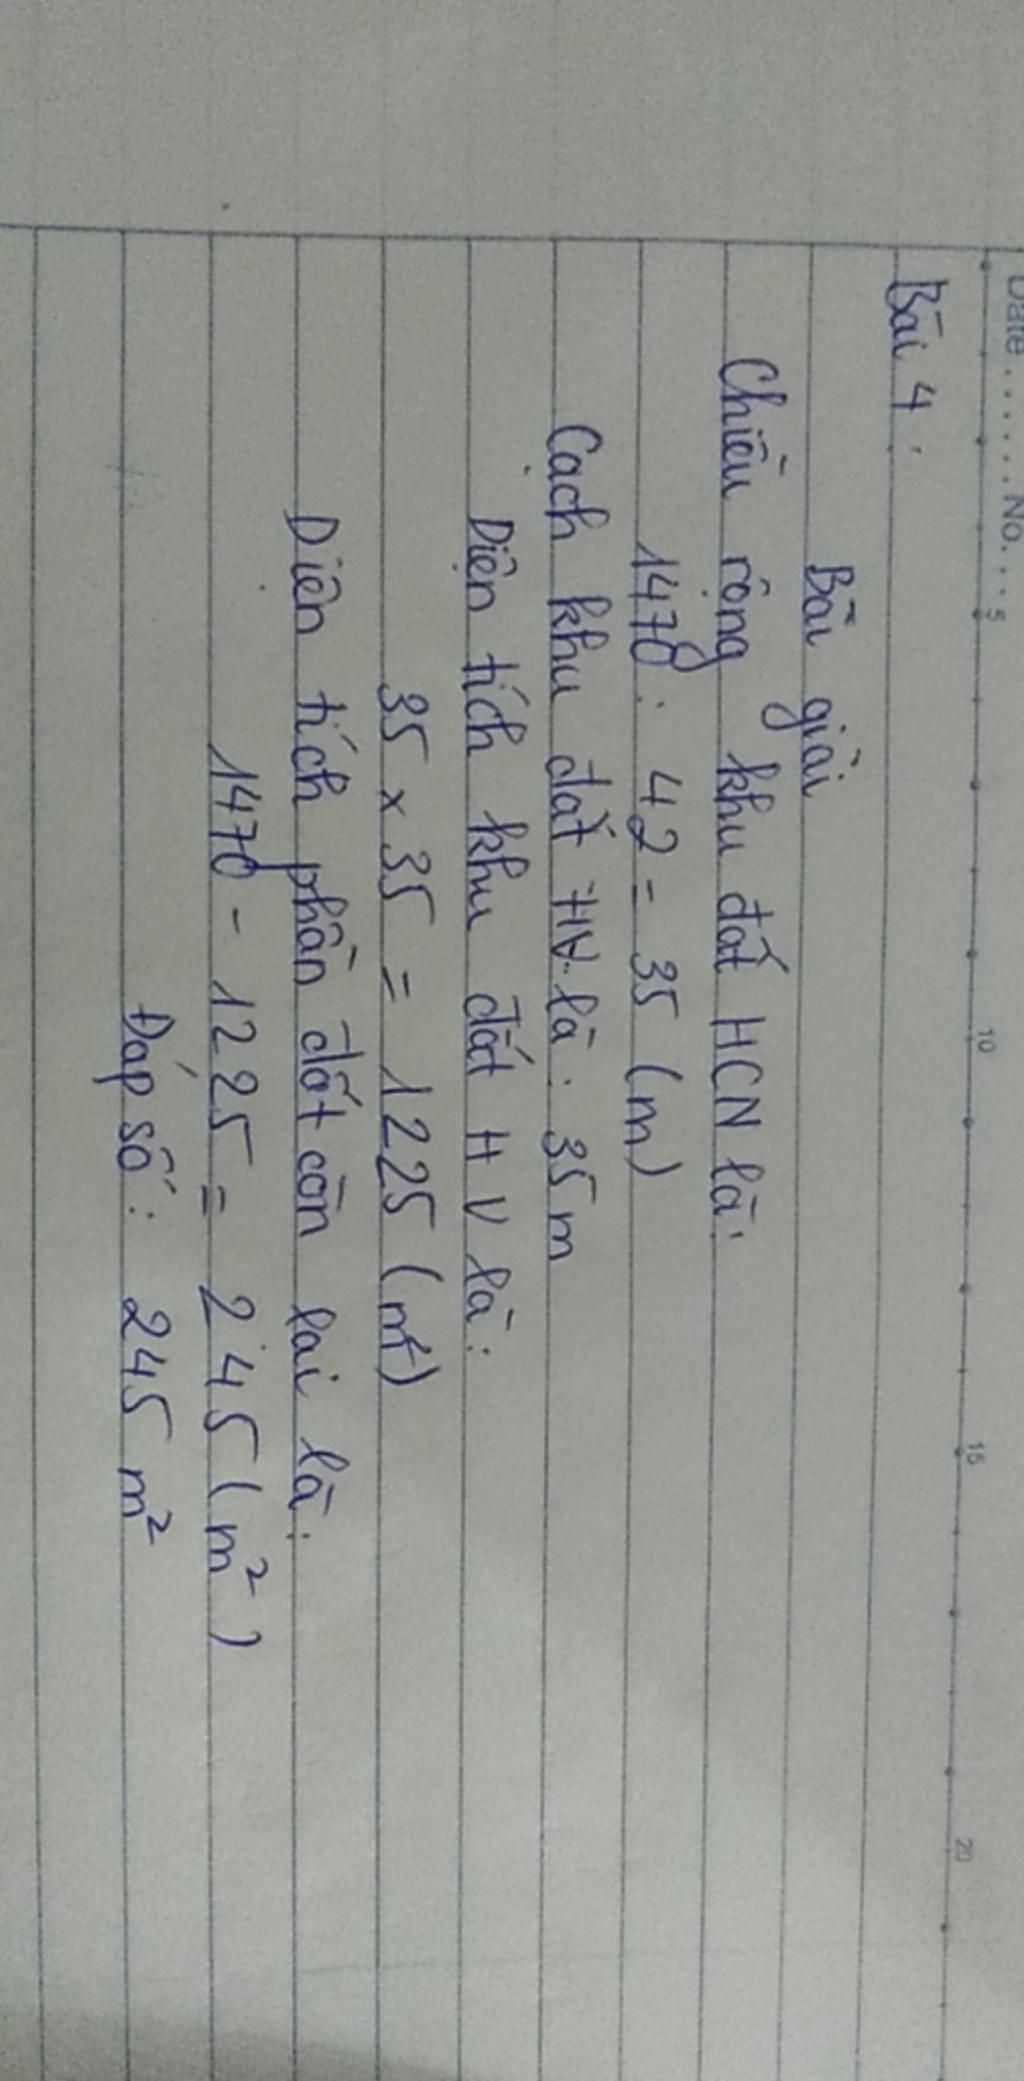 Date.......No...
5 10 15 20
Bài 4:
Bài giải
Chiều rộng khu đất HCN là:
1470 : 42 = 35 (m)
Cạch khu đất HV là: 35 m
Diện tích khu đất HV là:
35 x 35 = 1225 (m²)
Diện tích phần đất còn lại là:
1470 - 1225 = 245 (m²)
Đáp số: 245 m²